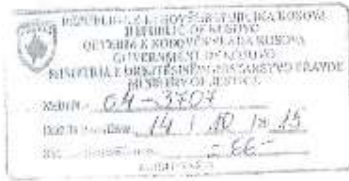 REPUBLIKA E KOSOVËS/REPUBLIKA KOSOVA
REPUBLIC OF KOSOVO
QEVERIA E KOSOVËS/VLADA KOSOVA
GOVERNMENT OF KOSOVO
MINISTRIA E DREJTËSISË/MINISTARSTVO PRAVDE
MINISTRY OF JUSTICE
04-3707
14 / 10 / 15
- 66 -